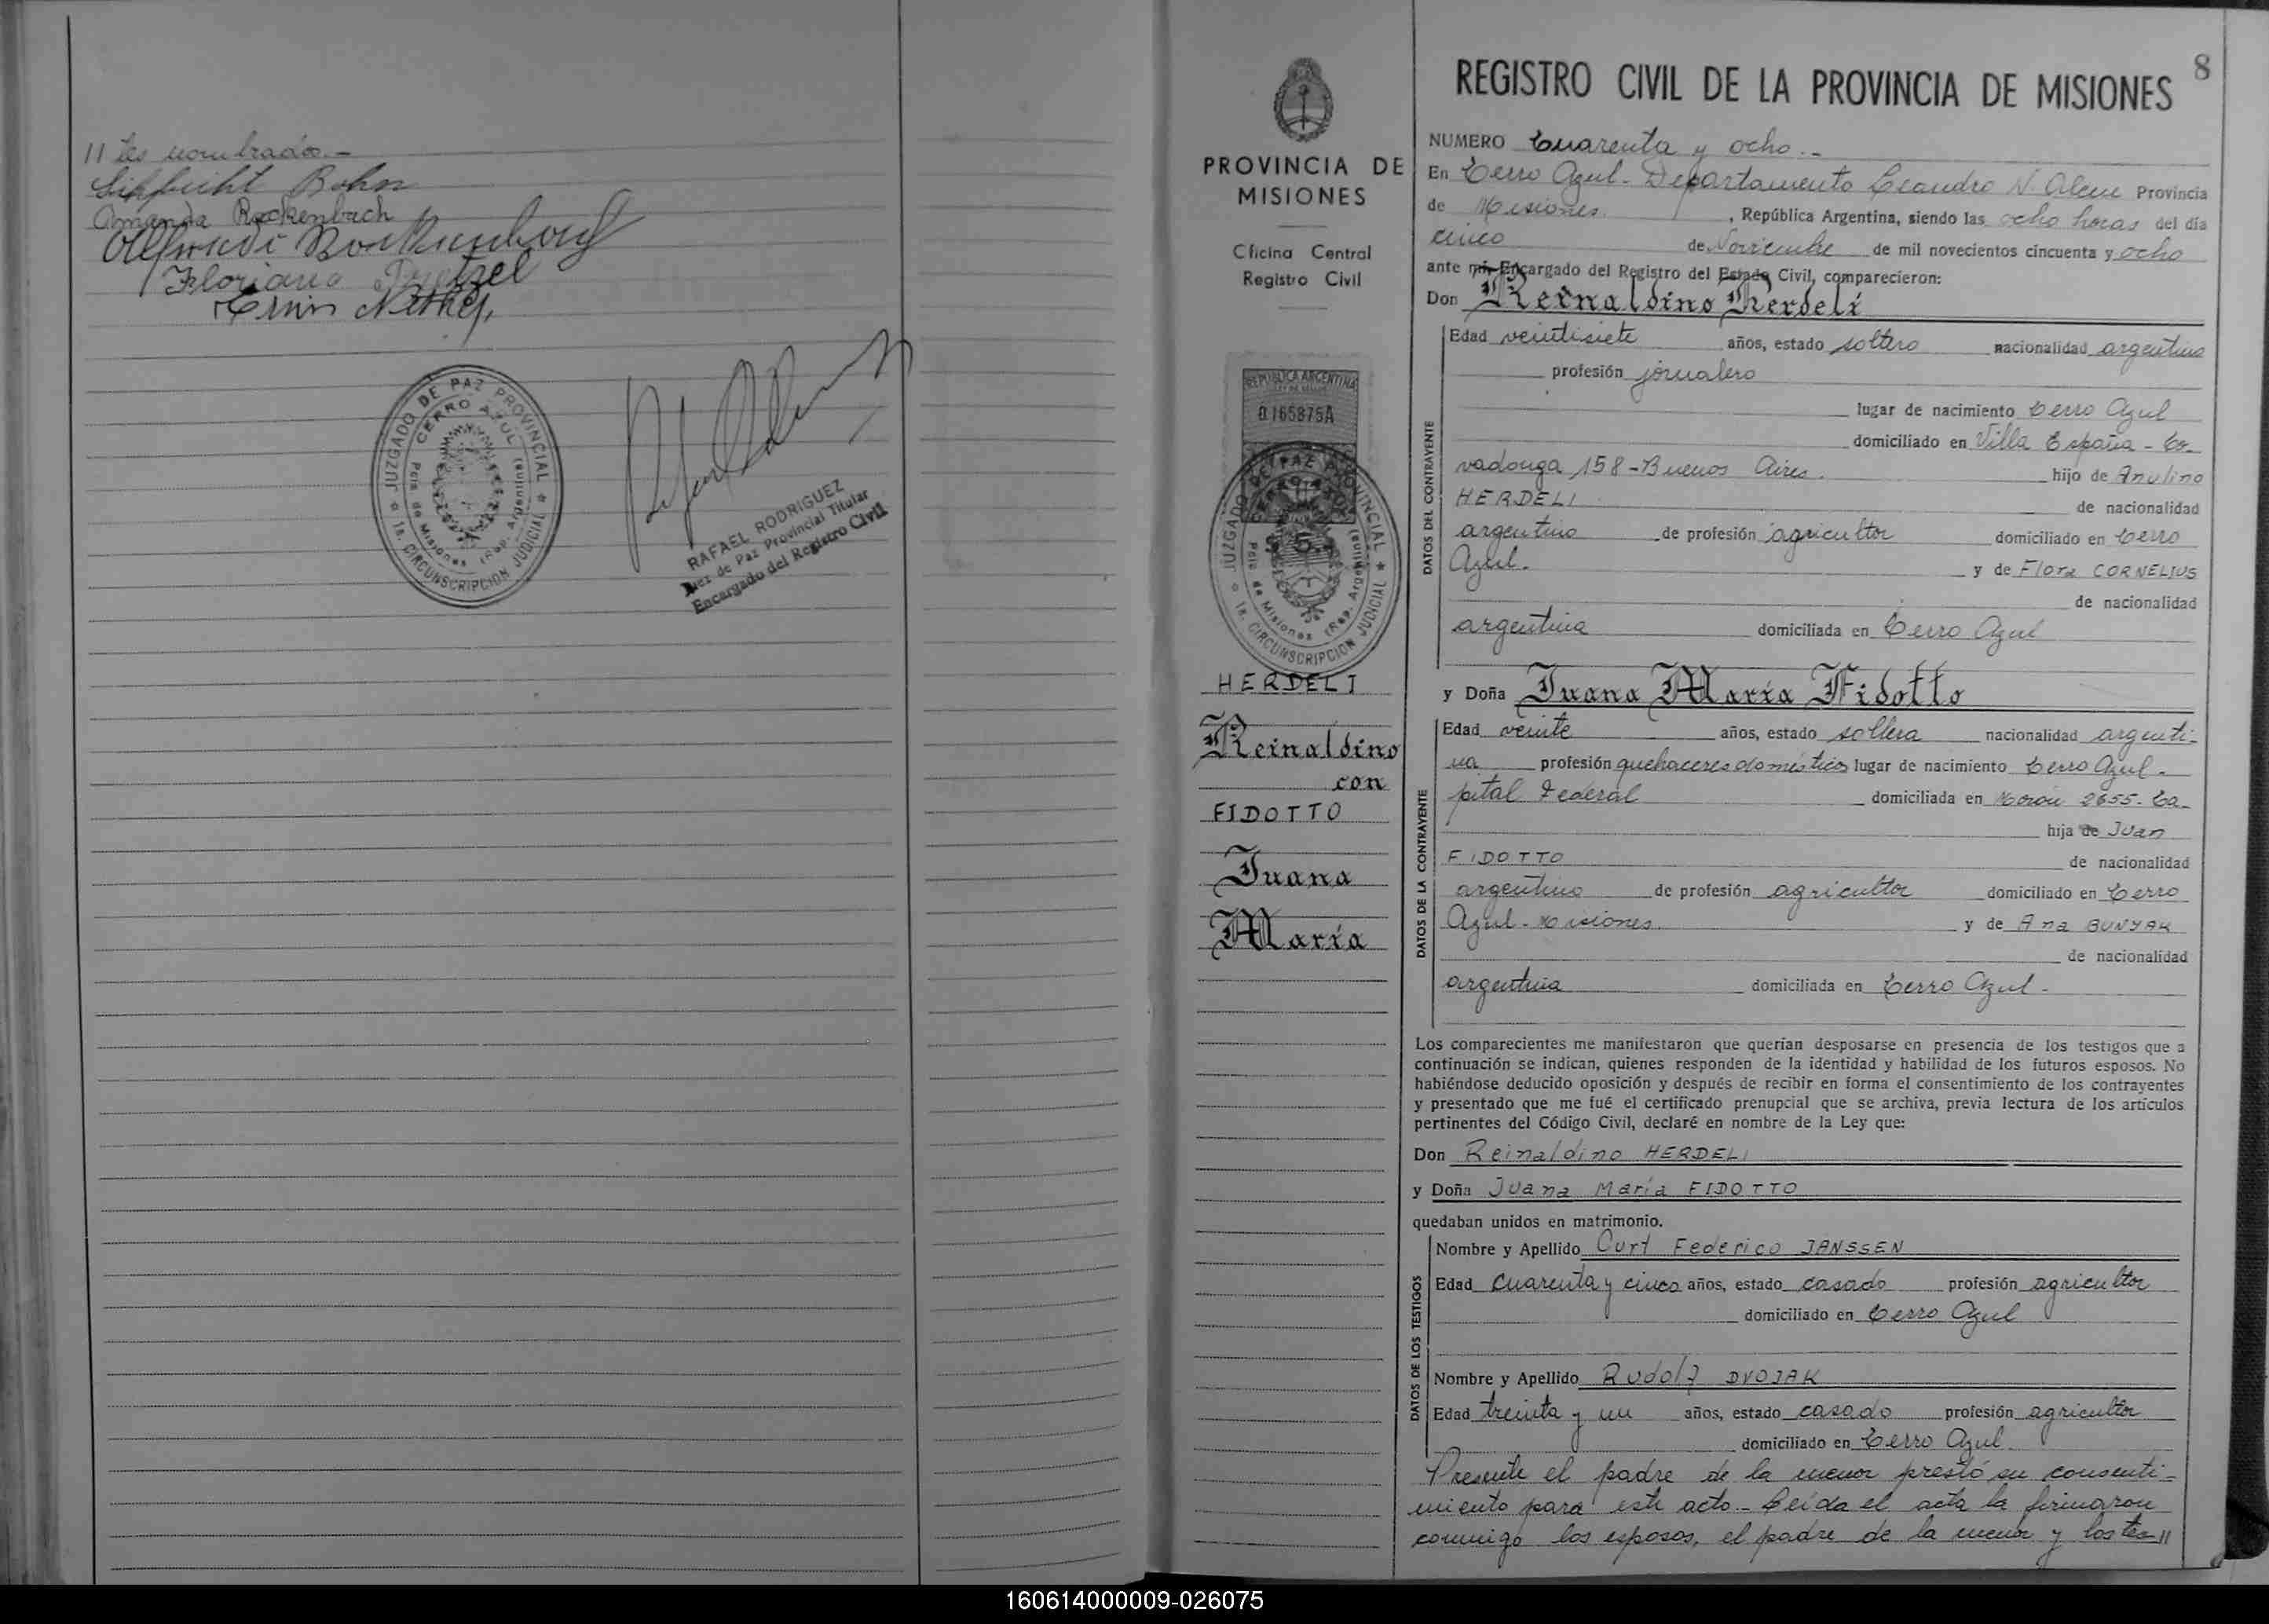 // tes nombrados.-
Bohn
Amanda Rockenbach
Floriano
JUZGADO DE PAZ PROVINCIAL
CERRO AZUL
Pcia de Misiones (Rep. Argentina)
1a. CIRCUNSCRIPCION JUDICIAL
RAFAEL RODRIGUEZ
Juez de Paz Provincial Titular
Encargado del Registro Civil
PROVINCIA DE
MISIONES
Oficina Central
Registro Civil
REPUBLICA ARGENTINA
0165875A
JUZGADO DE PAZ PROVINCIAL
CERRO AZUL
Pcia de Misiones (Rep. Argentina)
1a. CIRCUNSCRIPCION JUDICIAL
HERDELI
Reinaldino
con
FIDOTTO
Juana
María
8
REGISTRO CIVIL DE LA PROVINCIA DE MISIONES
NUMERO Cuarenta y ocho.-
En Cerro Azul - Departamento Leandro N. Alem Provincia
de Misiones, República Argentina, siendo las ocho horas del día
cinco de Noviembre de mil novecientos cincuenta y ocho
ante mí, Encargado del Registro del Estado Civil, comparecieron:
Don Reinaldino Herdeli
Edad veintisiete años, estado soltero nacionalidad argentino
profesión jornalero
lugar de nacimiento Cerro Azul
domiciliado en Villa España - Co-
vadonga 158 - Buenos Aires. hijo de Anulino
HERDELI de nacionalidad
argentino de profesión agricultor domiciliado en Cerro
Azul. y de Flora CORNELIUS
de nacionalidad
argentina domiciliada en Cerro Azul
DATOS DEL CONTRAYENTE
y Doña Juana María Fidotto
Edad veinte años, estado soltera nacionalidad argenti-
na profesión quehaceres domésticos lugar de nacimiento Cerro Azul.
pital Federal domiciliada en Morón 2655. Ca-
hija de Juan
FIDOTTO de nacionalidad
argentino de profesión agricultor domiciliado en Cerro
Azul - Misiones. y de Ana BUNYAK
de nacionalidad
argentina domiciliada en Cerro Azul -
DATOS DE LA CONTRAYENTE
Los comparecientes me manifestaron que querían desposarse en presencia de los testigos que a
continuación se indican, quienes responden de la identidad y habilidad de los futuros esposos. No
habiéndose deducido oposición y después de recibir en forma el consentimiento de los contrayentes
y presentado que me fué el certificado prenupcial que se archiva, previa lectura de los artículos
pertinentes del Código Civil, declaré en nombre de la Ley que:
Don Reinaldino HERDELI
y Doña Juana María FIDOTTO
quedaban unidos en matrimonio.
Nombre y Apellido Curt Federico JANSSEN
Edad cuarenta y cinco años, estado casado profesión agricultor
domiciliado en Cerro Azul
Nombre y Apellido Rudolf DVOJAK
Edad treinta y un años, estado casado profesión agricultor
domiciliado en Cerro Azul.
DATOS DE LOS TESTIGOS
Presente el padre de la menor prestó su consenti-
miento para este acto.- Leída el acta la firmaron
conmigo los esposos, el padre de la menor y los tes//
160614000009-026075